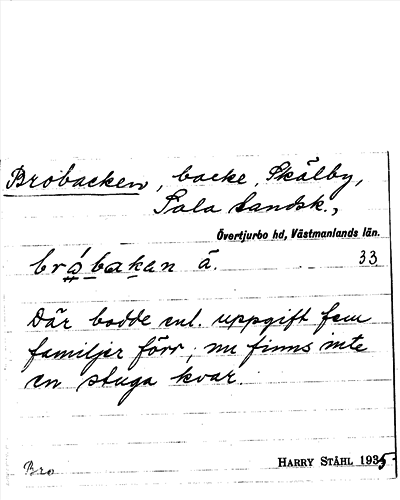 Brobacken, backe, Skälby,
Sala landsk.,
Övertjurbo hd, Västmanlands län.
bråbakan ä. 33
Där bodde enl. uppgift fem
familjer förr; nu finns inte
en stuga kvar.
Bro HARRY STÅHL 1935